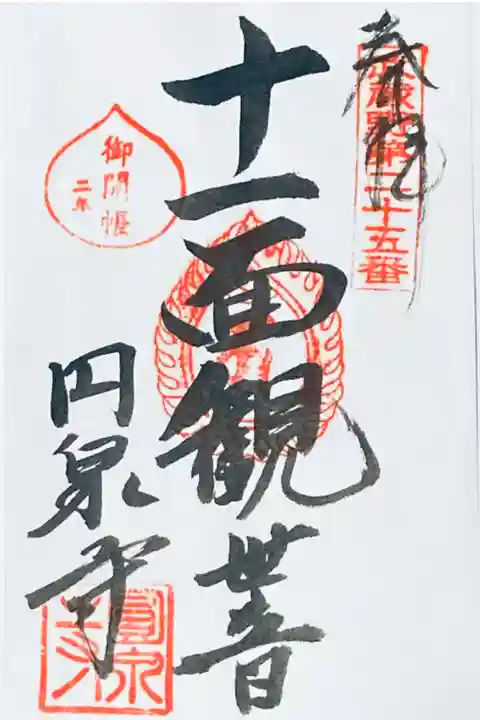 奉拝
武蔵野第二十五番
十一面観世音
御開帳
二年
円泉寺
圓泉